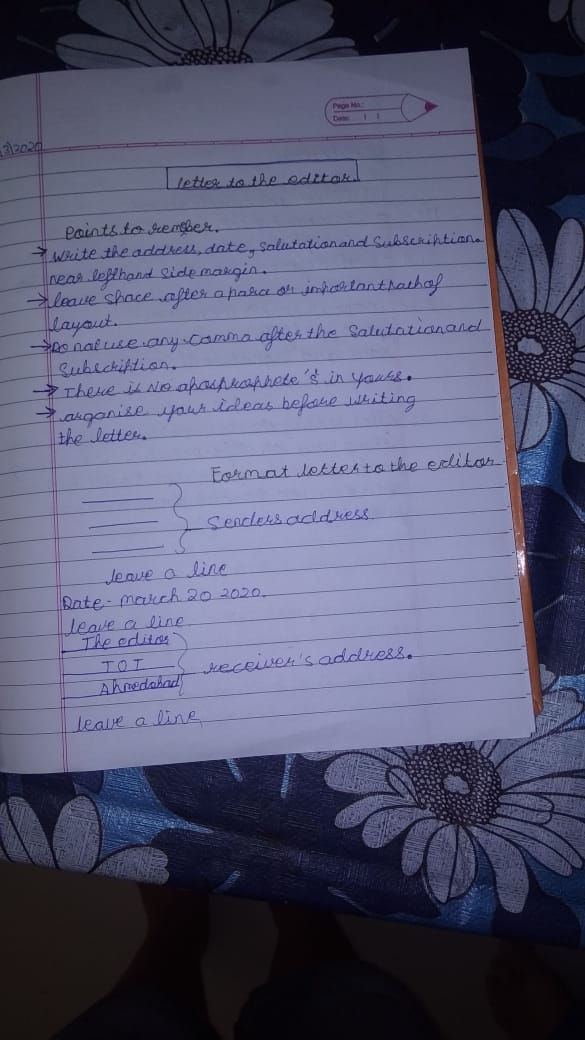 Page No.:
Date: | |
3/2020
letter to the editor.
Points to remeber.
→ write the address, date, salutation and subscription.
near lefthand side margin.
→ leave space after a para or important
layout.
→ Do not use any comma after the salutation and
subscription.
→ There is no 's in yours.
→ organise your ideas before writing
the letter.
Format letter to the editor
Senders address
leave a line
Date - march 20 2020.
leave a line
The editor
TOI
Ahmedabad
receiver's address.
leave a line